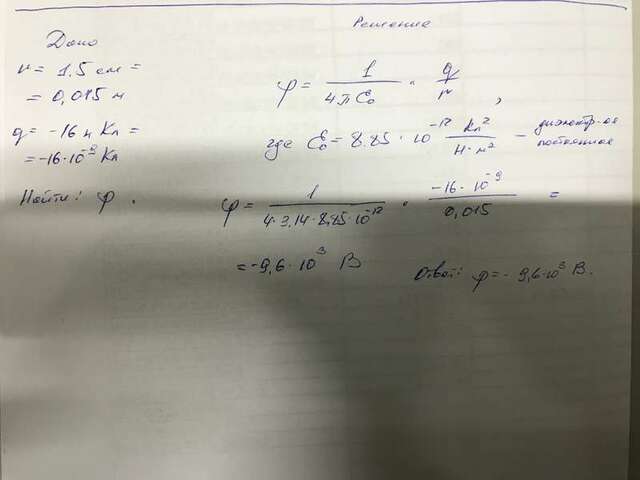 Решение
Дано
r = 1,5 см =
= 0,015 м
q = -16 н Кл =
= -16·10⁻⁹ Кл
Найти: φ.
φ = 1/(4πε₀) · q/r,
где ε₀ = 8.85·10⁻¹² Кл²/(Н·м²) - диэлектр-ая
постоянная
φ = 1/(4·3,14·8,85·10⁻¹²) · (-16·10⁻⁹)/0,015 =
= -9,6·10³ В
Ответ: φ = -9,6·10³ В.